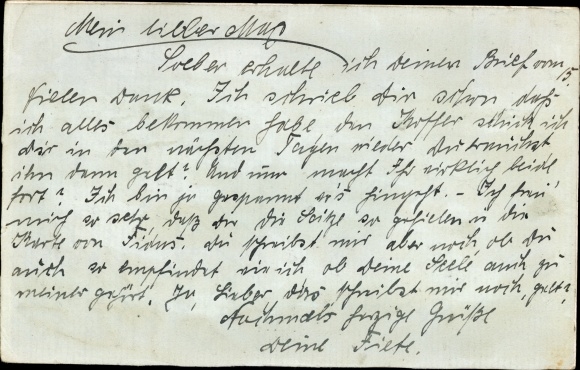 Mein lieber Max
Soeben erhalte ich deinen Brief vom 15.
Vielen Dank. Ich schrieb Dir schon daß
ich alles bekommen habe, den Koffer schick ich
Dir in den nächsten Tagen wieder Du brauchst
ihn dann gelt? Und nun macht Ihr wirklich beide
fort? Ich bin ja gespannt wo's hingeht. - Ich freu'
mich so sehr, daß dir die so gefielen u die
Karte von Fidus. Du schreibst mir aber noch, ob Du
auch so empfindet wie ich ob Deine Seele auch zu
meiner gehört. Ja, Lieber, das schreibst mir noch, gelt,
Nochmals herzige Grüße
Deine Fiete.